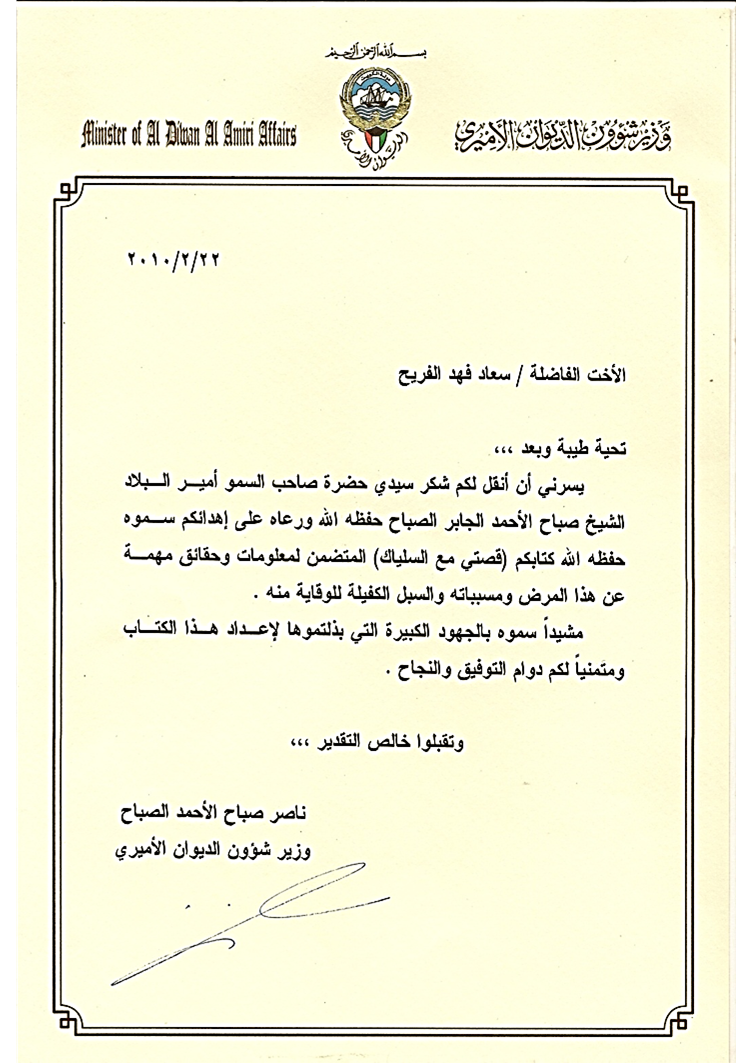 بسم الله الرحمن الرحيم
Minister of Al Diwan Al Amiri Affairs
وَزِير شؤُون الدِّيوَان الأَمِيري
الديوان الأميري
٢٠١٠/٢/٢٢
الأخت الفاضلة / سعاد فهد الفريح
تحية طيبة وبعد ،،،
يسرني أن أنقل لكم شكر سيدي حضرة صاحب السمو أميــر الــبلاد
الشيخ صباح الأحمد الجابر الصباح حفظه الله ورعاه على إهدائكم ســموه
حفظه الله كتابكم (قصتي مع السلياك) المتضمن لمعلومات وحقائق مهمــة
عن هذا المرض ومسبباته والسبل الكفيلة للوقاية منه .
مشيداً سموه بالجهود الكبيرة التي بذلتموها لإعــداد هــذا الكتــاب
ومتمنياً لكم دوام التوفيق والنجاح .
وتقبلوا خالص التقدير ،،،
ناصر صباح الأحمد الصباح
وزير شؤون الديوان الأميري